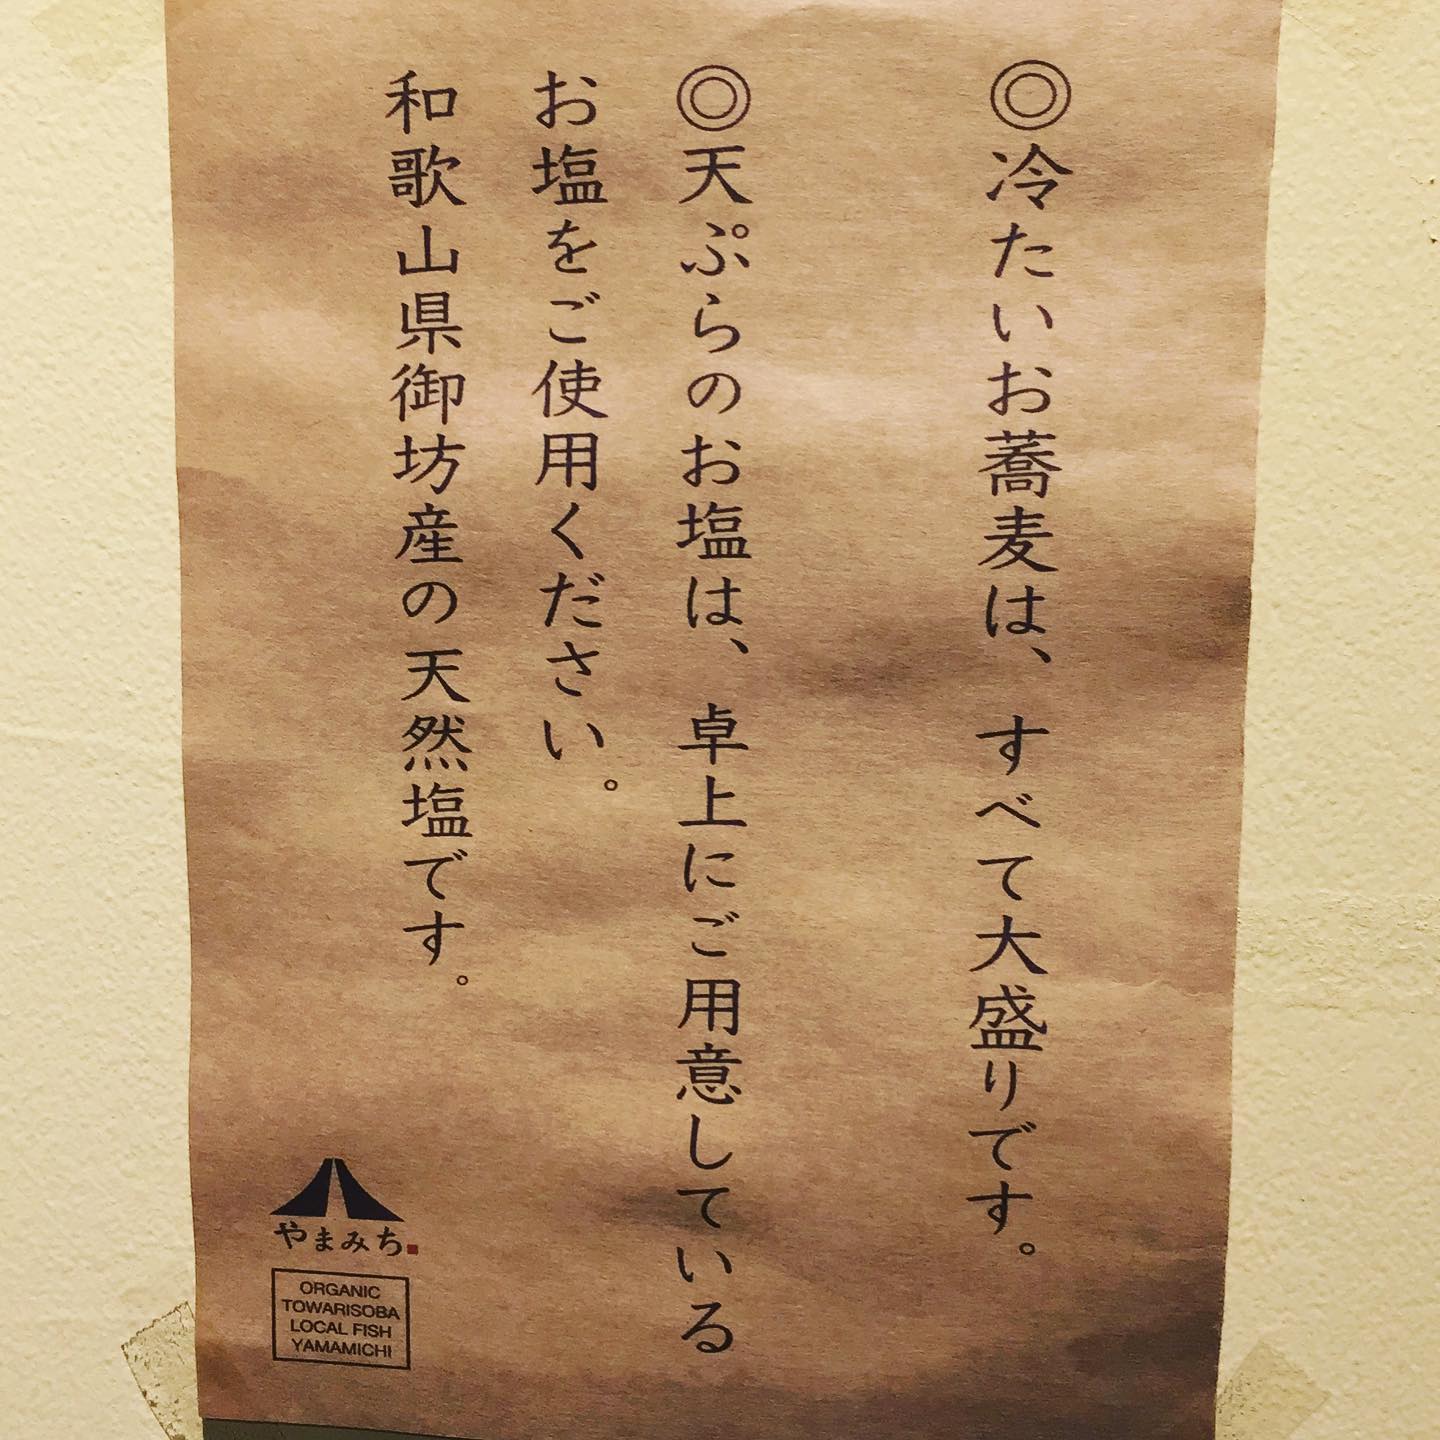 ◎冷たいお蕎麦は、すべて大盛りです。
◎天ぷらのお塩は、卓上にご用意している
お塩をご使用ください。
和歌山県御坊産の天然塩です。
やまみち
ORGANIC
TOWARISOBA
LOCAL FISH
YAMAMICHI